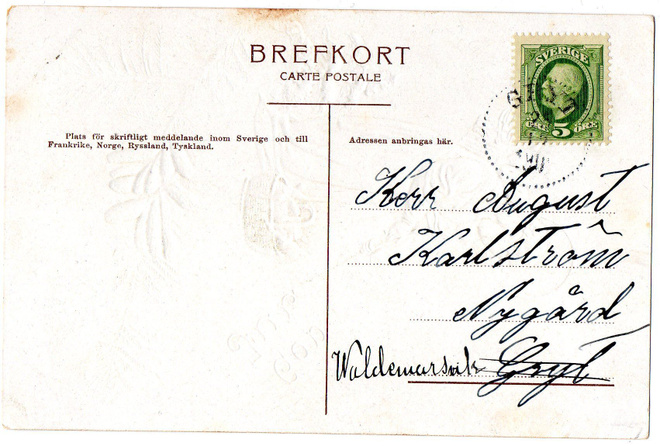 BREFKORT
CARTE POSTALE
SVERIGE
ÖRE 5 ÖRE
Plats för skriftligt meddelande inom Sverige och till
Frankrike, Norge, Ryssland, Tyskland.
Adressen anbringas här.
Herr August
Karlström
Nygård
Waldemarsvik Gryt